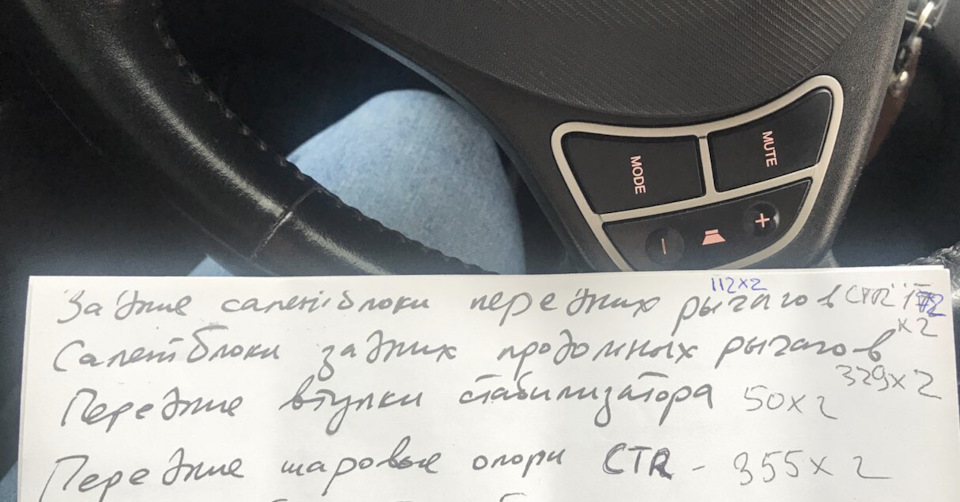 MODE
MUTE
+
-
112x2
Задние салентблоки передних рычагов CTR
x2
Салентблоки задних продолных рычагов
329x2
Передние втулки стабилизатора 50x2
Передние шаровые опори CTR - 355x2